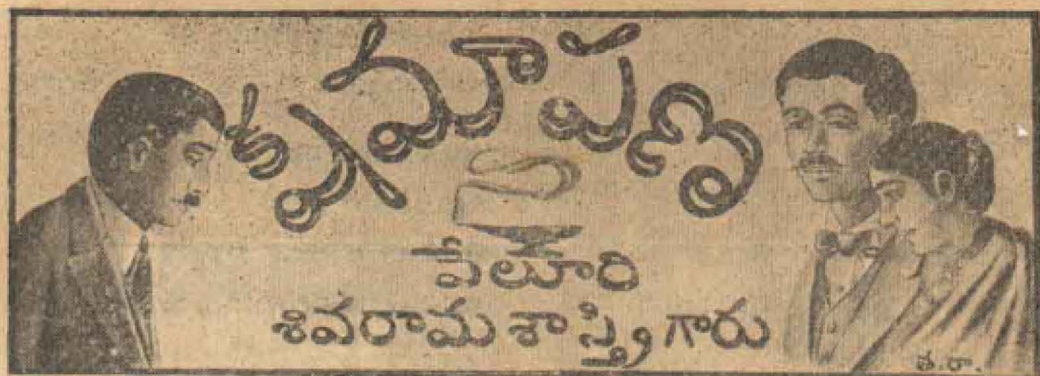 క్షమాపణ
వేలూరి
శివరామ శాస్త్రి గారు
త.రా.